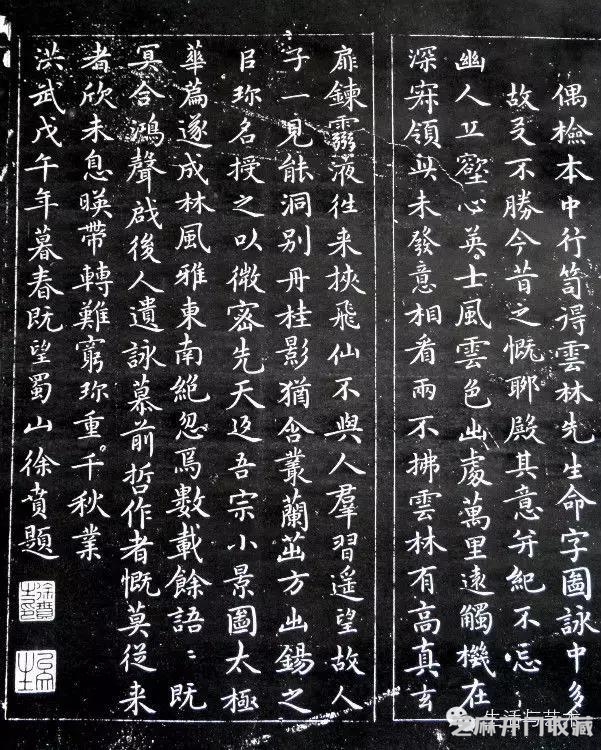 偶檢本中行笥得雲林先生命字圖詠中多
故友不勝今昔之慨聊殿其意并紀不忘
幽人丘壑心英士風雲色出處萬里遠觸機在
深寂領此未發意相看兩不拂雲林有高真玄
扉鍊靈液往來挾飛仙不與人羣習遥望故人
子一見能洞别丹桂影猶含叢蘭茁方出錫之
㠯珎名授之以微密先天廹吾宗小景圖太極
華篇遂成林風雅東南絶忽焉數載餘語〻既
冥合鴻聲啟後人遺詠慕前哲作者慨莫從来
者欣未息暎帶轉難窮珎重千秋業
洪武戊午年暮春既望蜀山徐賁題
生活与艺术
麻开门收藏